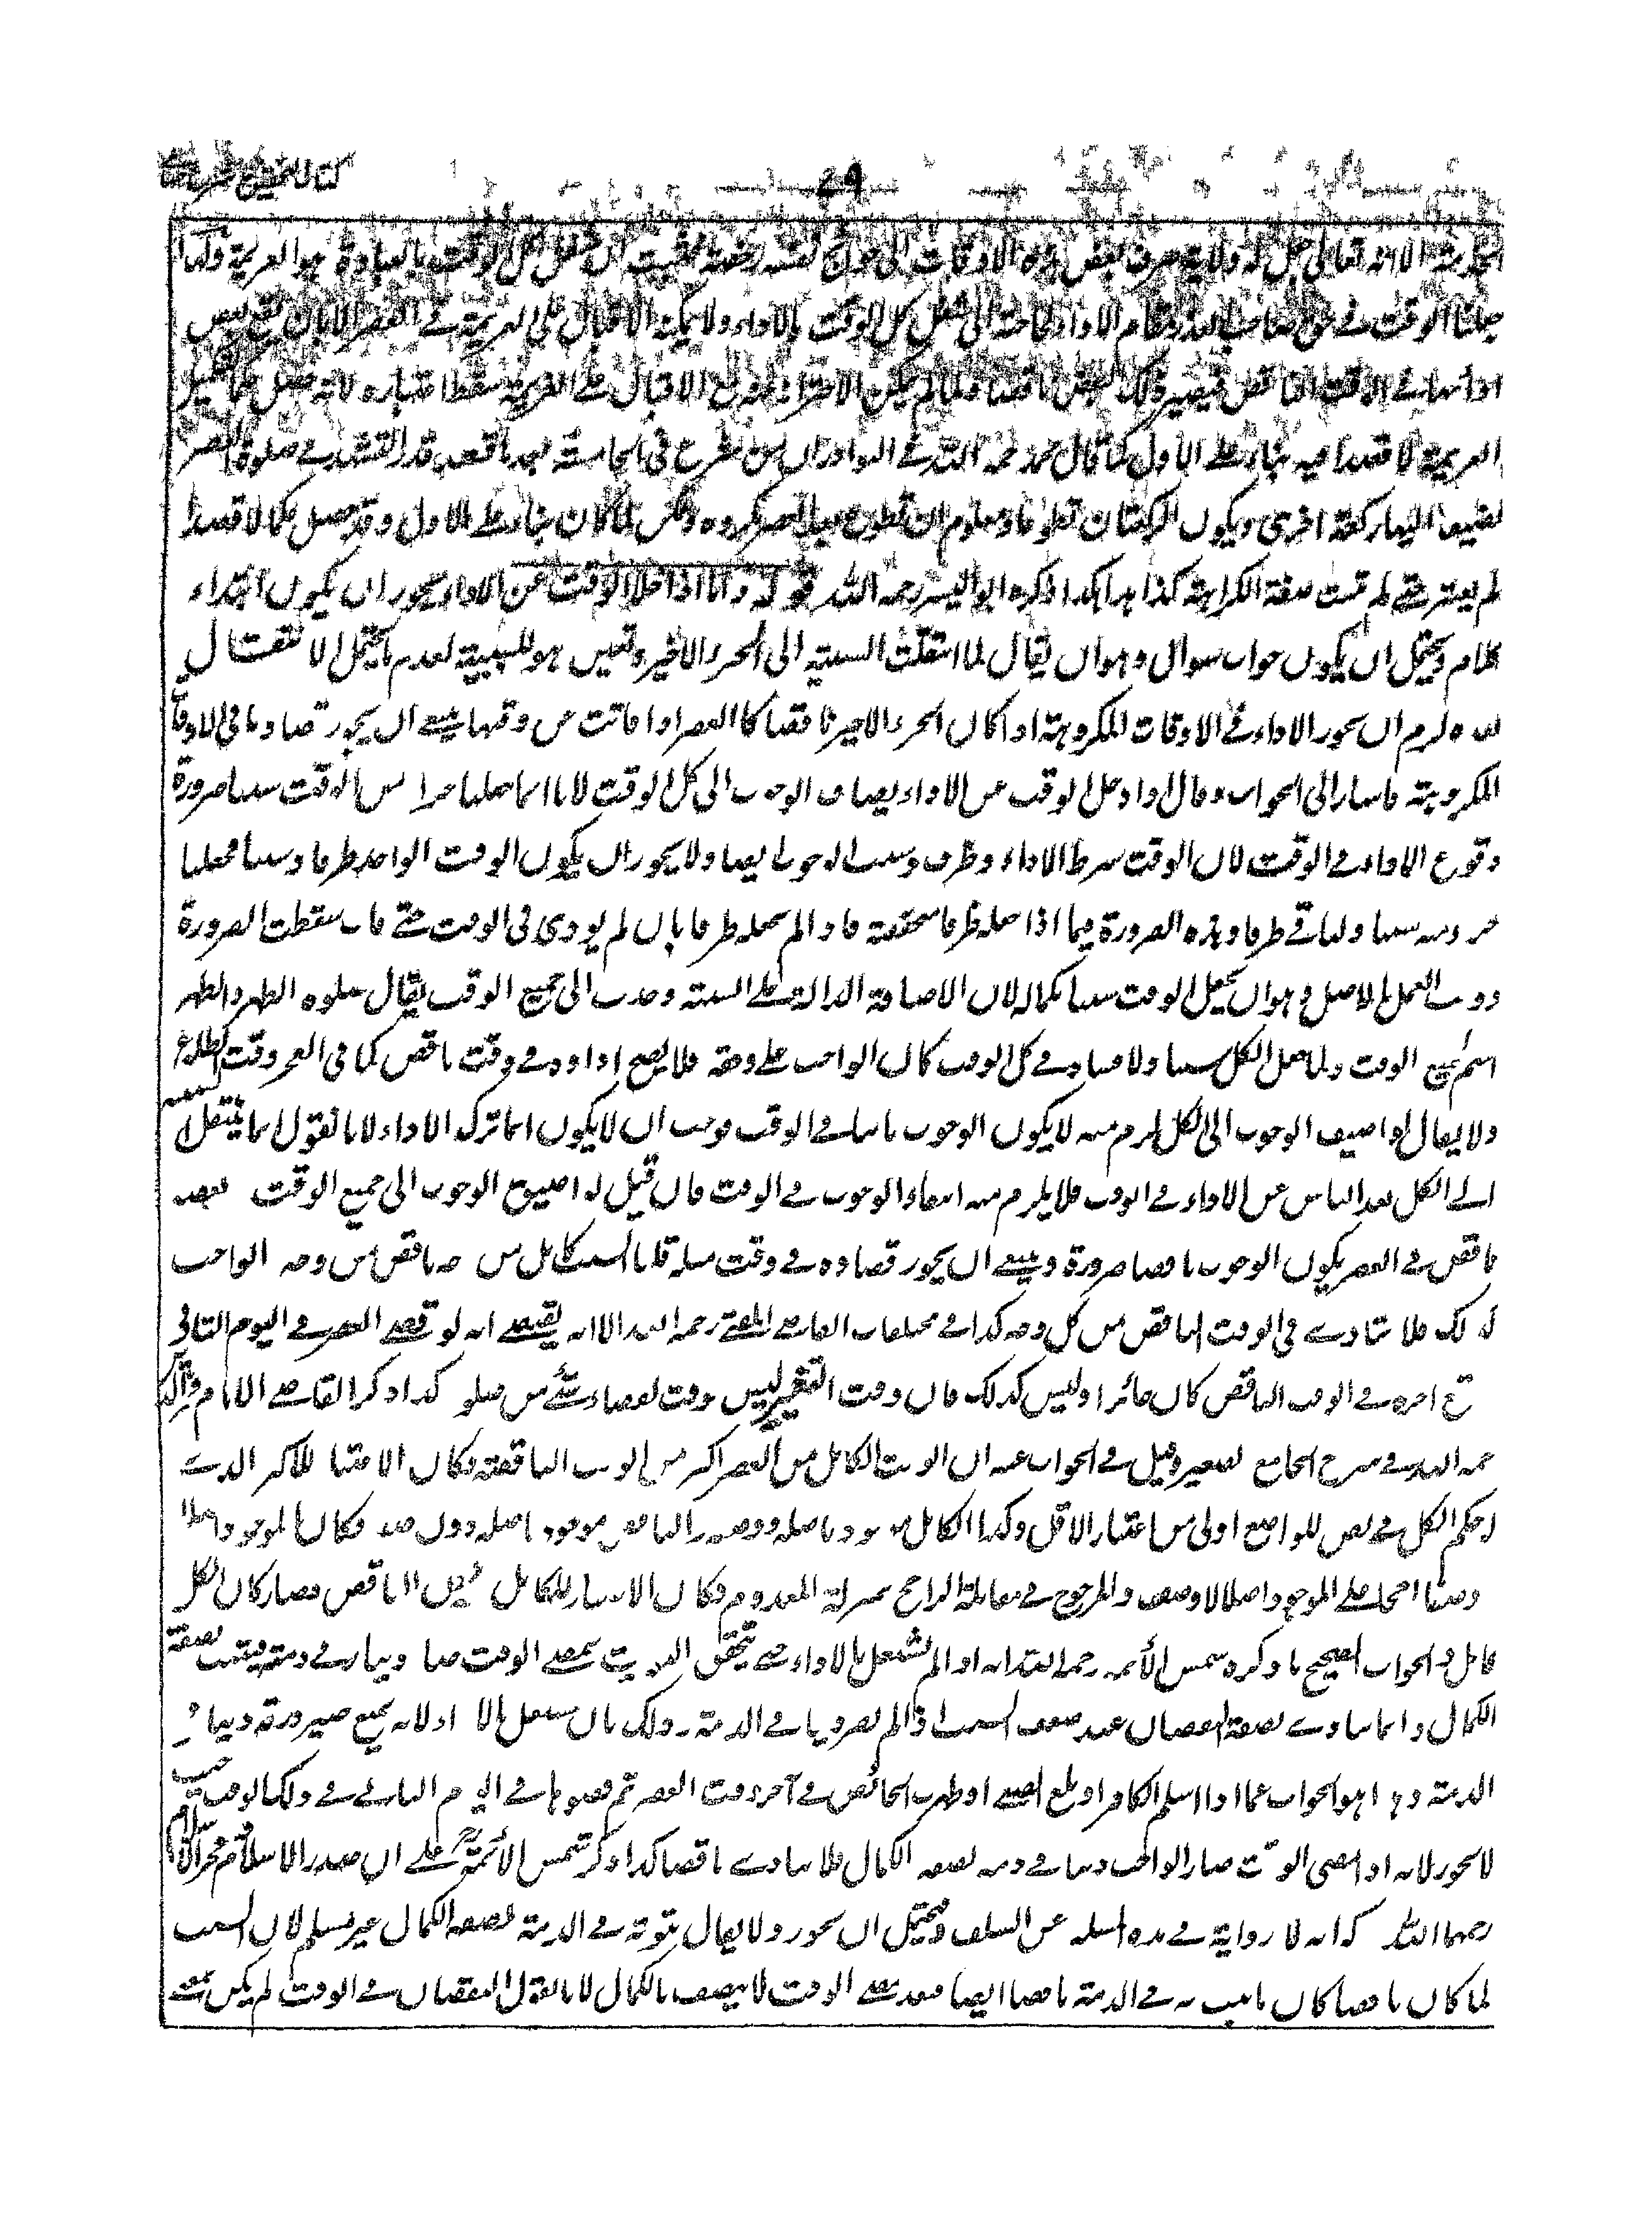 ٤٩
الخدمة الا انه تعالى جعل له ولاية صرف بعض هذه الاوقات الى حوائج نفسه رخصة فثبت ان شغل كل الوقت بالعبادة هو العزيمة
جعلنا الوقت في حق صاحب العذر مقام الاداء لحاجته الى شغل كل الوقت بالاداء ولا يمكنه الاقبال على العزيمة في العصر الا بان يقع بعض
ادائها في الوقت الناقص فيصير ذلك البعض ناقصا فلما لم يكن الاحتراز عنه مع الاقبال على العزيمة سقط اعتباره لانه حصل حكما
العزيمة لا قصدا فيه بناء على الاول كما قال محمد رحمه الله في النوادر ان من شرع في الخامسة بعد ما قعد قدر التشهد في صلوة العصر
يضيف اليها ركعة اخرى ويكون الركعتان تطوعا ومعلوم ان التطوع بعد العصر مكروه ولكن لما كان بناء على الاول وقد حصل حكما لا قصدا
لم يعتبر حتى لم تثبت صفة الكراهة كذا هذا هكذا ذكره ابو اليسر رحمه الله قوله واما اذا خلا الوقت عن الاداء يجوز ان يكون ابتداء
كلام ويحتمل ان يكون جواب سوال وهو ان يقال لما انتقلت السببية الى الجزء الاخير وتعين هو للسببية لعدم ما يحتمل الانتقال
بعده لزم ان يجوز الاداء في الاوقات المكروهة اذا كان الجزء الاخير ناقصا كالعصر اذا فاتت عن وقتها ينبغي ان يجوز قضاؤها في الاوقات
المكروهة فاشار الى الجواب وقال اذا خلا الوقت عن الاداء يضاف الوجوب الى كل الوقت لانا انما جعلنا جزأ من الوقت سببا ضرورة
وقوع الاداء في الوقت لان الوقت شرط الاداء وظرف وسبب الوجوب ايضا ولا يجوز ان يكون الوقت الواحد ظرفا وسببا فجعلنا
جزء منه سببا والباقي ظرفا وهذه الضرورة فيما اذا جعله ظرفا حقيقة فاذا لم يجعله ظرفا بان لم يودى في الوقت حتى فات سقطت الضرورة
ووجب العمل بالاصل وهو ان يجعل الوقت سببا بكماله لان الاضافة الدالة على السببية وجدت الى جميع الوقت يقال صلوة الظهر والظهر
اسم لجميع الوقت ولما جعل الكل سببا ولا فساد في كل الوقت كان الواجب على وفقه فلا يصح اداؤه في وقت ناقص كما في الفجر وقت الطلوع
ولا يقال لو اضيف الوجوب الى الكل لزم منه لا يكون الوجوب ثابتا في الوقت فوجب ان لا يكون اثما بترك الاداء لانا نقول انما ينتقل السببية
الى الكل بعد الياس عن الاداء في الوقت فلا يلزم منه انتفاء الوجوب في الوقت فان قيل لو اضيف الوجوب الى جميع الوقت بعضه
ناقص في العصر يكون الوجوب ناقصا ضرورة وينبغي ان يجوز قضاؤه في وقت مثله قلنا السبب كامل من وجه ناقص من وجه الواجب
كذلك فلا يتادى في الوقت الناقص من كل وجه كذا في مختلفات القاضي المفتي رحمه الله الا انه يقتضي انه لو قضى العصر في اليوم الثاني
وقع اخره في الوقت الناقص كان جائزا وليس كذلك فان وقت التغير ليس بوقت لقضاء شيء من صلوة كذا ذكر القاضي الامام فخر الدين
رحمه الله في شرح الجامع الصغير وقيل في الجواب عنه ان الوقت الكامل من العصر اكثر من الوقت الناقصة فكان الاعتبار للاكثر الذي
له حكم الكل في بعض المواضع اولى من اعتبار الاقل وكذا الكامل موجود باصله ووصفه والناقص موجود باصله دون وصفه فكان الموجود اصلا
ووصفا راجحا على الموجود اصلا لا وصفا والمرجوح في مقابلة الراجح بمنزلة المعدوم فكان الاعتبار للكامل دون الناقص فصار كان الكل
كامل والجواب الصحيح ما ذكره شمس الأئمة رحمه الله انه اذا لم يشتغل بالاداء حتى تحقق التفويت بمضي الوقت صار دينا في ذمته فيثبت بصفة
الكمال وانما يتادى بصفة النقصان عند ضعف السبب اذا لم يصر دينا في الذمة وذلك بان يشتغل بالاداء لانه يمنع صيرورته دينا في
الذمة وهذا هو الجواب عما اذا اسلم الكافر او بلغ الصبي او طهرت الحائض في آخر وقت العصر ثم قضوها في اليوم الثاني في ذلك الوقت حيث
لا يجوز لانه اذا مضى الوقت صار الواجب دينا في ذمته بصفة الكمال فلا يتادى ناقصا كذا ذكر شمس الأئمة على ان صدر الاسلام وفخر الاسلام
رحمهما الله ذكرا انه لا رواية في هذه المسئلة عن السلف ويحتمل ان يجوز ولا يقال ثبوته في الذمة بصفة الكمال غير مسلم لان السبب
لما كان ناقصا كان ما يثبت به في الذمة ناقصا ايضا فبعد مضي الوقت لا يتصف بالكمال لانا نقول النقصان في الوقت لم يكن